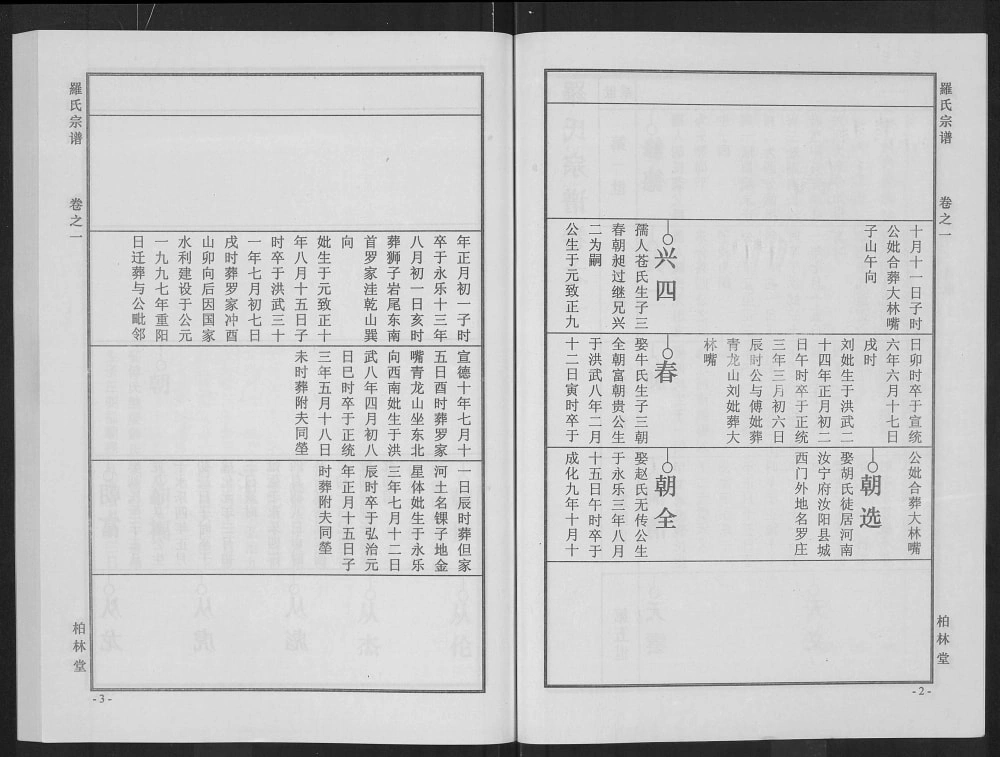 羅氏宗谱
卷之一
十月十一日子时
公妣合葬大林嘴
子山午向
兴四
孺人苍氏生子三
春朝昶过继兄兴
二为嗣
公生于元致正九
日卯时卒于宣统
六年六月十七日
戌时
刘妣生于洪武二
十四年正月初二
日午时卒于正统
三年三月初六日
辰时公与傅妣葬
青龙山刘妣葬大
林嘴
春
娶牛氏生子三朝
全朝富朝贵公生
于洪武八年二月
十二日寅时卒于
公妣合葬大林嘴
朝选
娶胡氏徒居河南
汝宁府汝阳县城
西门外地名罗庄
朝全
娶赵氏无传公生
于永乐三年八月
十五日午时卒于
成化九年十月十
柏林堂
-2-
年正月初一子时
卒于永乐十三年
八月初一日亥时
葬狮子岩尾东南
首罗家洼乾山巽
向
妣生于元致正十
年八月十五日子
时卒于洪武三十
一年七月初七日
戌时葬罗家冲酉
山卯向后因国家
水利建设于公元
一九九七年重阳
日迁葬与公毗邻
宣德十年七月十
五日酉时葬罗家
嘴青龙山坐东北
向西南妣生于洪
武八年四月初八
日巳时卒于正统
三年五月十八日
未时葬附夫同茔
一日辰时葬但家
河土名锞子地金
星体妣生于永乐
三年七月十二日
辰时卒于弘治元
年正月十五日子
时葬附夫同茔
羅氏宗谱
卷之一
柏林堂
-3-